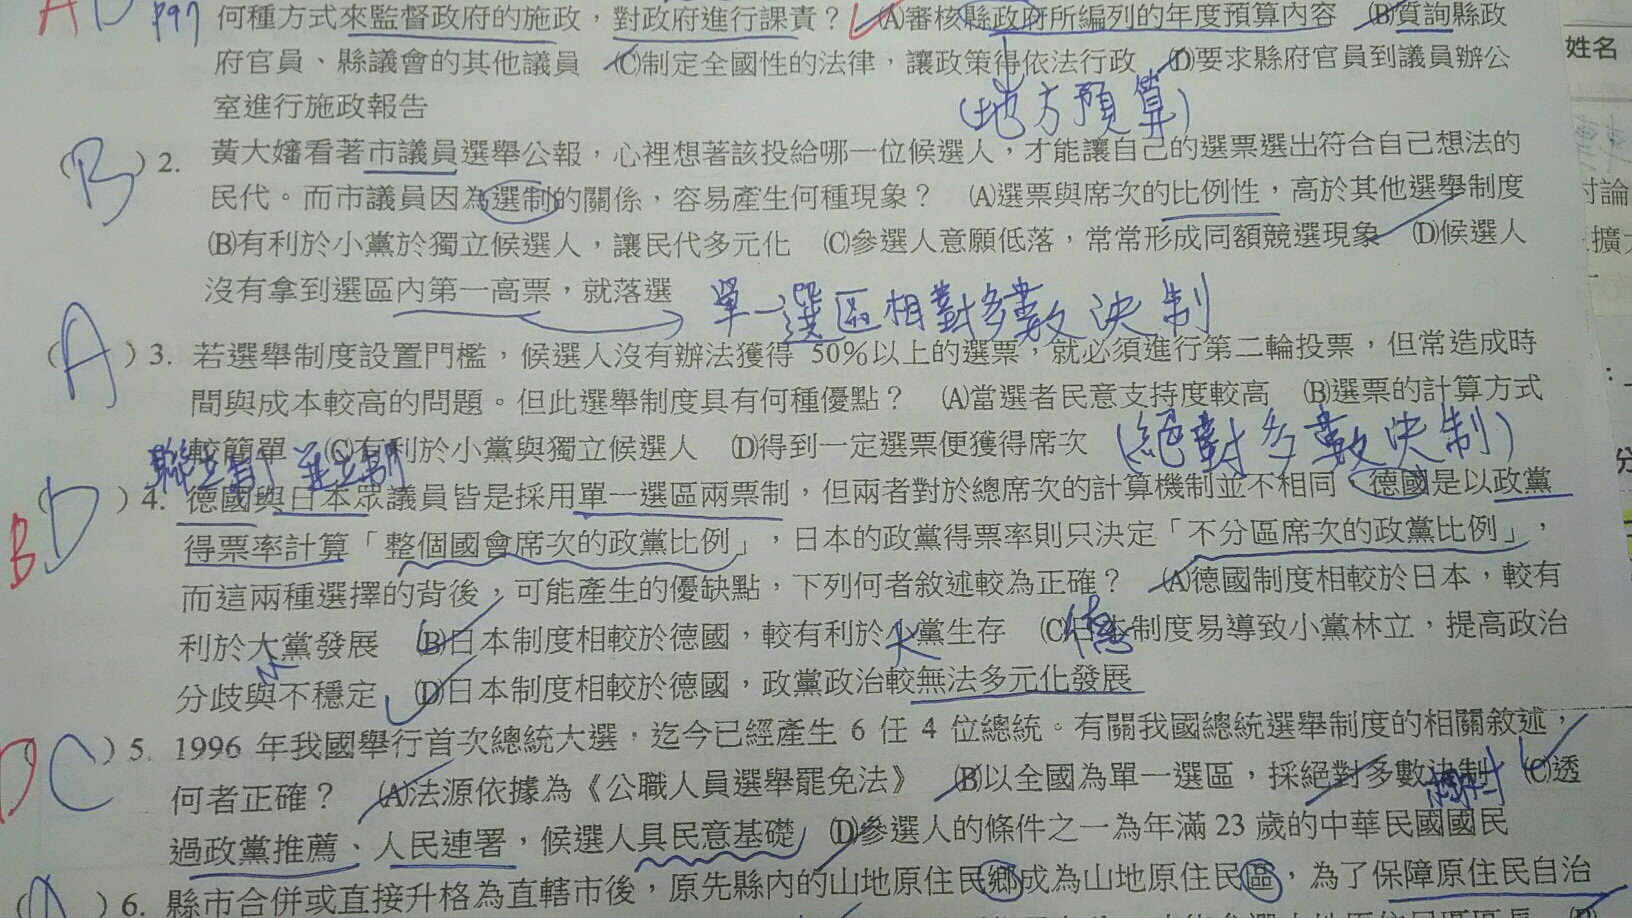 AD P97 何種方式來監督政府的施政，對政府進行課責？ (A)審核縣政府所編列的年度預算內容 (B)質詢縣政
府官員、縣議會的其他議員 (C)制定全國性的法律，讓政策得依法行政 (D)要求縣府官員到議員辦公
室進行施政報告
(地方預算)
(B)2. 黃大嬸看著市議員選舉公報，心裡想著該投給哪一位候選人，才能讓自己的選票選出符合自己想法的
民代。而市議員因為選制的關係，容易產生何種現象？ (A)選票與席次的比例性，高於其他選舉制度
(B)有利於小黨於獨立候選人，讓民代多元化 (C)參選人意願低落，常常形成同額競選現象 (D)候選人
沒有拿到選區內第一高票，就落選
單一選區相對多數決制
(A)3. 若選舉制度設置門檻，候選人沒有辦法獲得 50%以上的選票，就必須進行第二輪投票，但常造成時
間與成本較高的問題。但此選舉制度具有何種優點？ (A)當選者民意支持度較高 (B)選票的計算方式
較簡單 (C)有利於小黨與獨立候選人 (D)得到一定選票便獲得席次
(絕對多數決制)
聯立制 並立制
B (D)4. 德國與日本眾議員皆是採用單一選區兩票制，但兩者對於總席次的計算機制並不相同，德國是以政黨
得票率計算「整個國會席次的政黨比例」，日本的政黨得票率則只決定「不分區席次的政黨比例」，
而這兩種選擇的背後，可能產生的優缺點，下列何者敘述較為正確？ (A)德國制度相較於日本，較有
利於大黨發展 (B)日本制度相較於德國，較有利於小黨生存 (C)日本制度易導致小黨林立，提高政治
小 大 德
分歧與不穩定 (D)日本制度相較於德國，政黨政治較無法多元化發展
D (C)5. 1996 年我國舉行首次總統大選，迄今已經產生 6 任 4 位總統。有關我國總統選舉制度的相關敘述，
何者正確？ (A)法源依據為《公職人員選舉罷免法》 (B)以全國為單一選區，採絕對多數決制 (C)透
相對
過政黨推薦、人民連署，候選人具民意基礎 (D)參選人的條件之一為年滿 23 歲的中華民國國民
6. 縣市合併或直接升格為直轄市後，原先縣內的山地原住民鄉成為山地原住民區，為了保障原住民自治
姓名
討論
擴
分